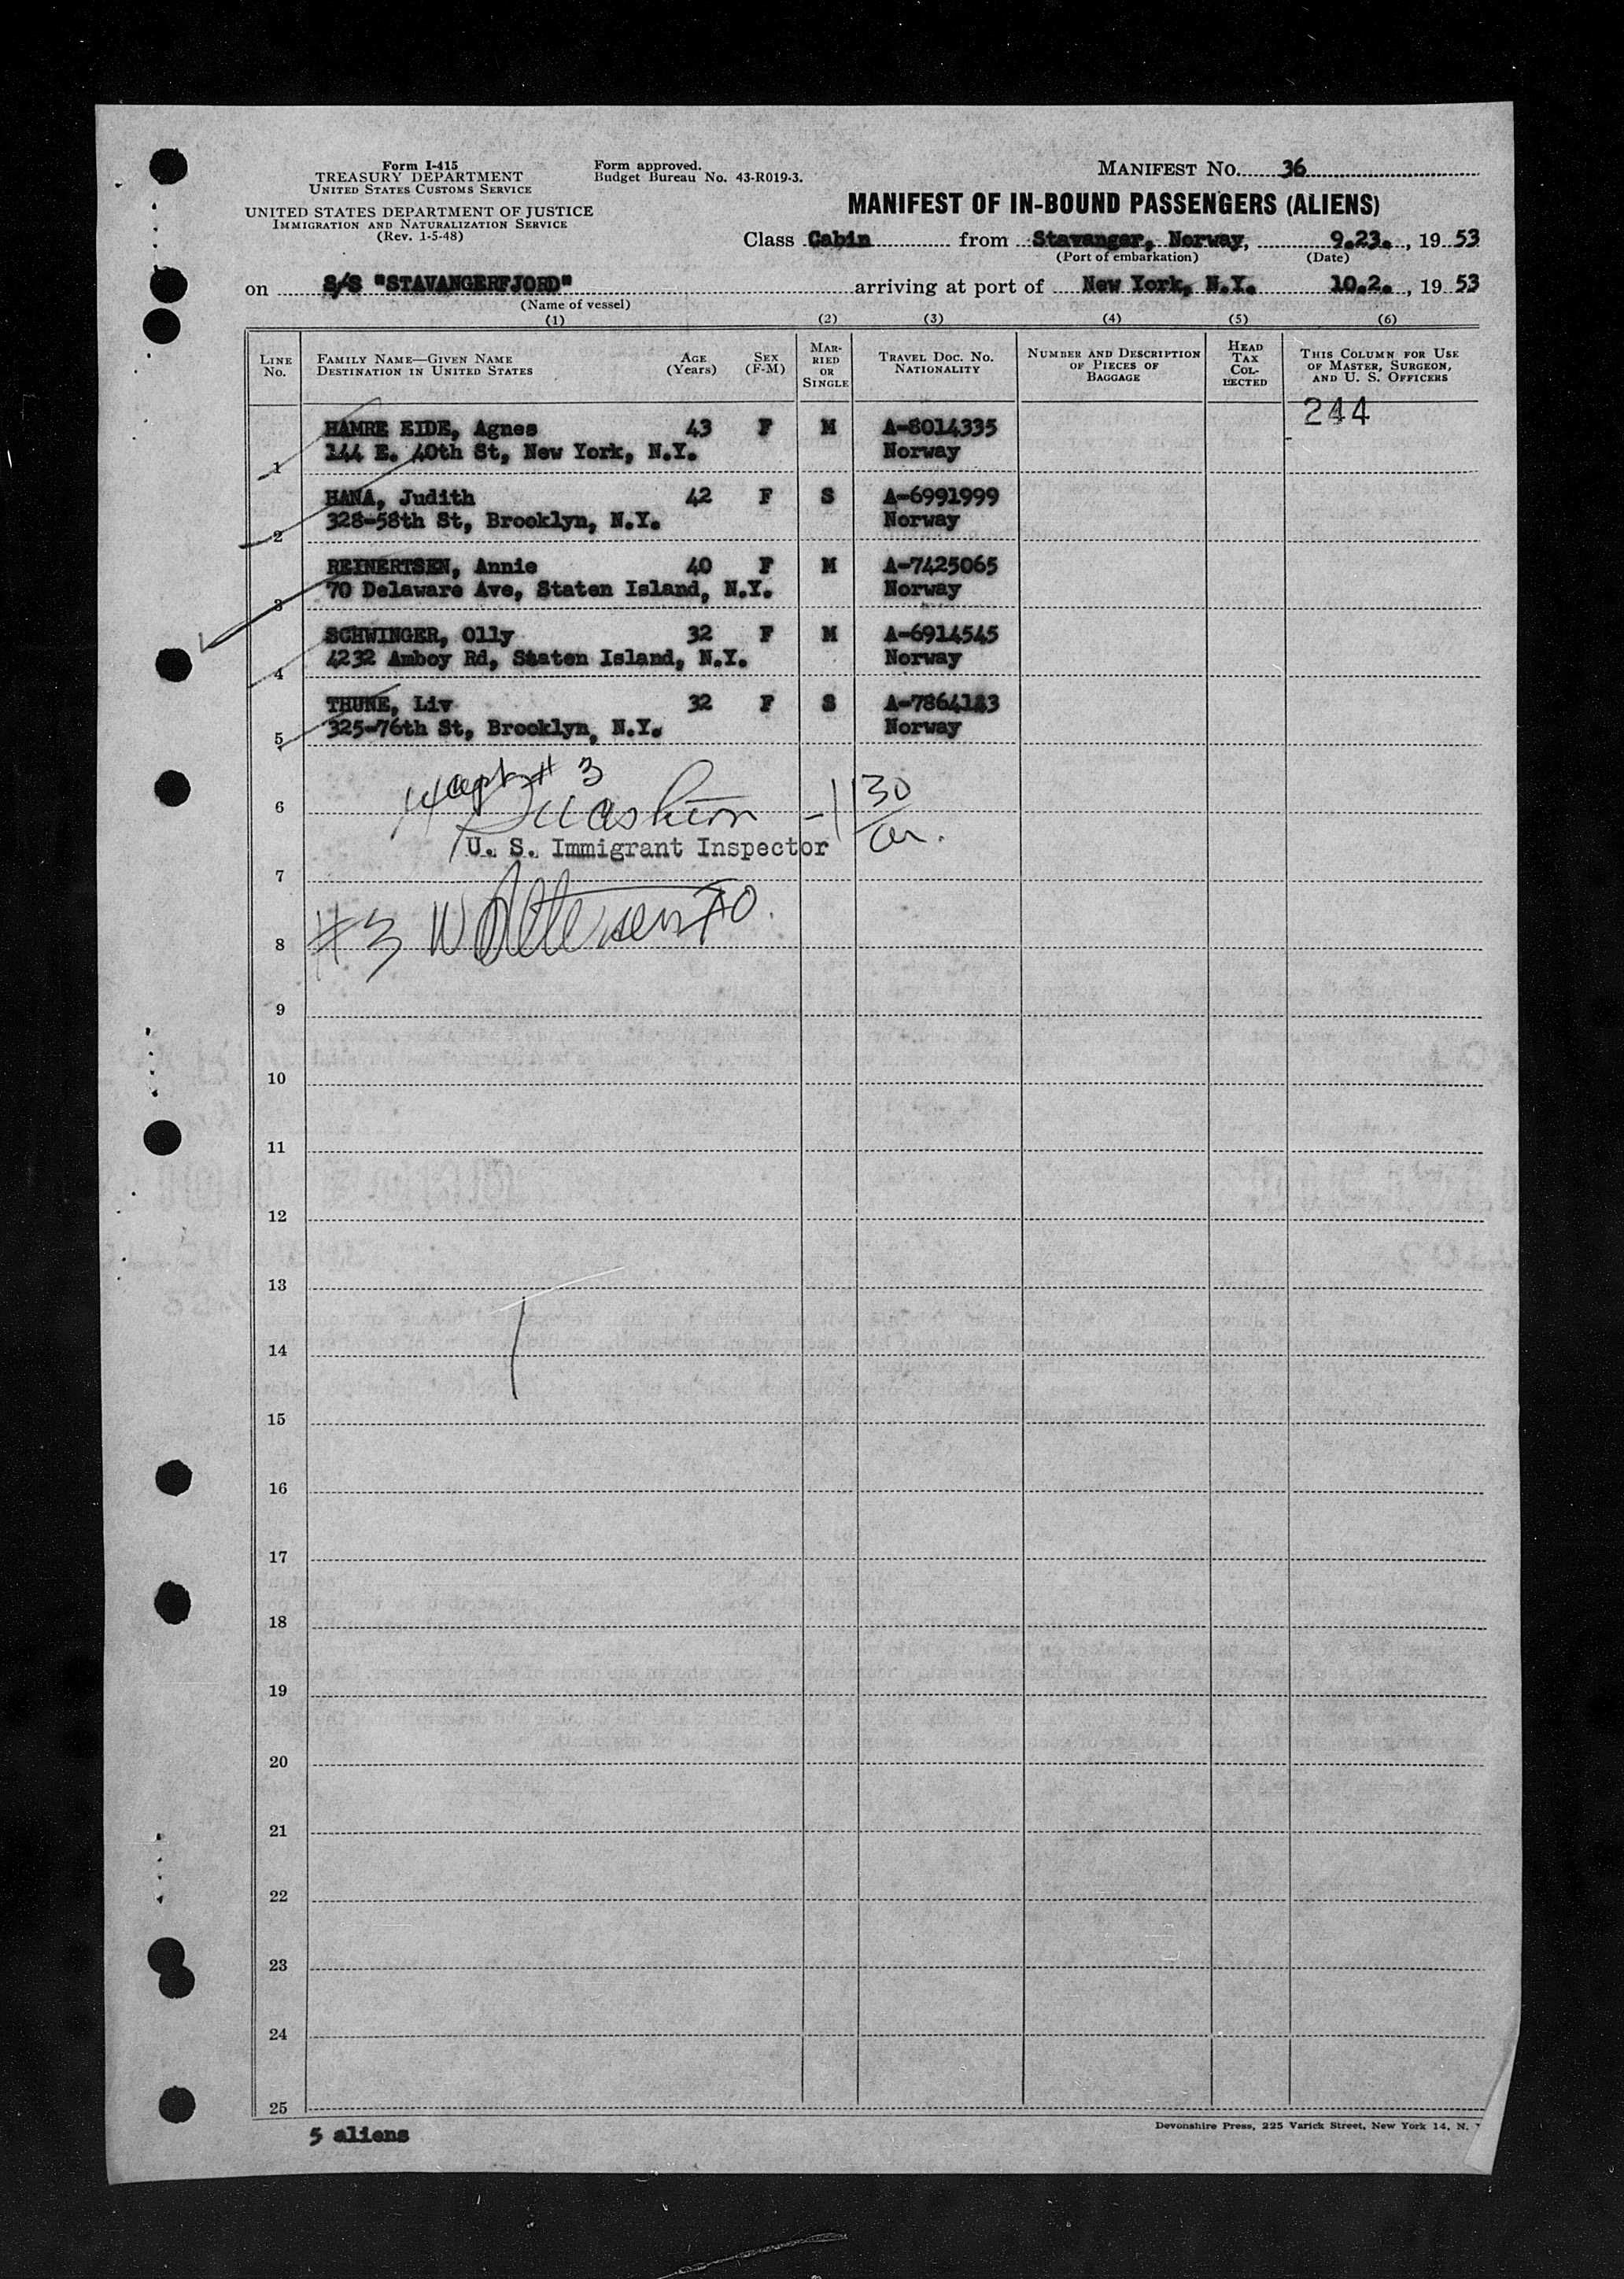 Form I-415
TREASURY DEPARTMENT
UNITED STATES CUSTOMS SERVICE
UNITED STATES DEPARTMENT OF JUSTICE
IMMIGRATION AND NATURALIZATION SERVICE
(Rev. 1-5-48)
Form approved.
Budget Bureau No. 43-R019-3.
MANIFEST NO. 36
MANIFEST OF IN-BOUND PASSENGERS (ALIENS)
Class Cabin from Stavanger, Norway, 9.23., 19 53
(Port of embarkation) (Date)
on S/S "STAVANGERFJORD" arriving at port of New York, N.Y. 10.2., 19 53
(Name of vessel)
(1) (2) (3) (4) (5) (6)
LINE No. FAMILY NAME—GIVEN NAME DESTINATION IN UNITED STATES AGE (Years) SEX (F-M) MARRIED OR SINGLE TRAVEL DOC. NO. NATIONALITY NUMBER AND DESCRIPTION OF PIECES OF BAGGAGE HEAD TAX COLLECTED THIS COLUMN FOR USE OF MASTER, SURGEON, AND U. S. OFFICERS
244
HAMRE EIDE, Agnes 43 F M A-8014335
1 144 E. 40th St, New York, N.Y. Norway
HANA, Judith 42 F S A-6991999
2 328-58th St, Brooklyn, N.Y. Norway
REINERTSEN, Annie 40 F M A-7425065
3 70 Delaware Ave, Staten Island, N.Y. Norway
SCHWINGER, Olly 32 F M A-6914545
4 4232 Amboy Rd, Staten Island, N.Y. Norway
THUNE, Liv 32 F S
5 325-76th St, Brooklyn, N.Y. Norway
# 3
6 1130
U. S. Immigrant Inspector
7
8 #3
9
10
11
12
13
14
15
16
17
18
19
20
21
22
23
24
25
5 aliens
Devonshire Press, 225 Varick Street, New York 14, N.